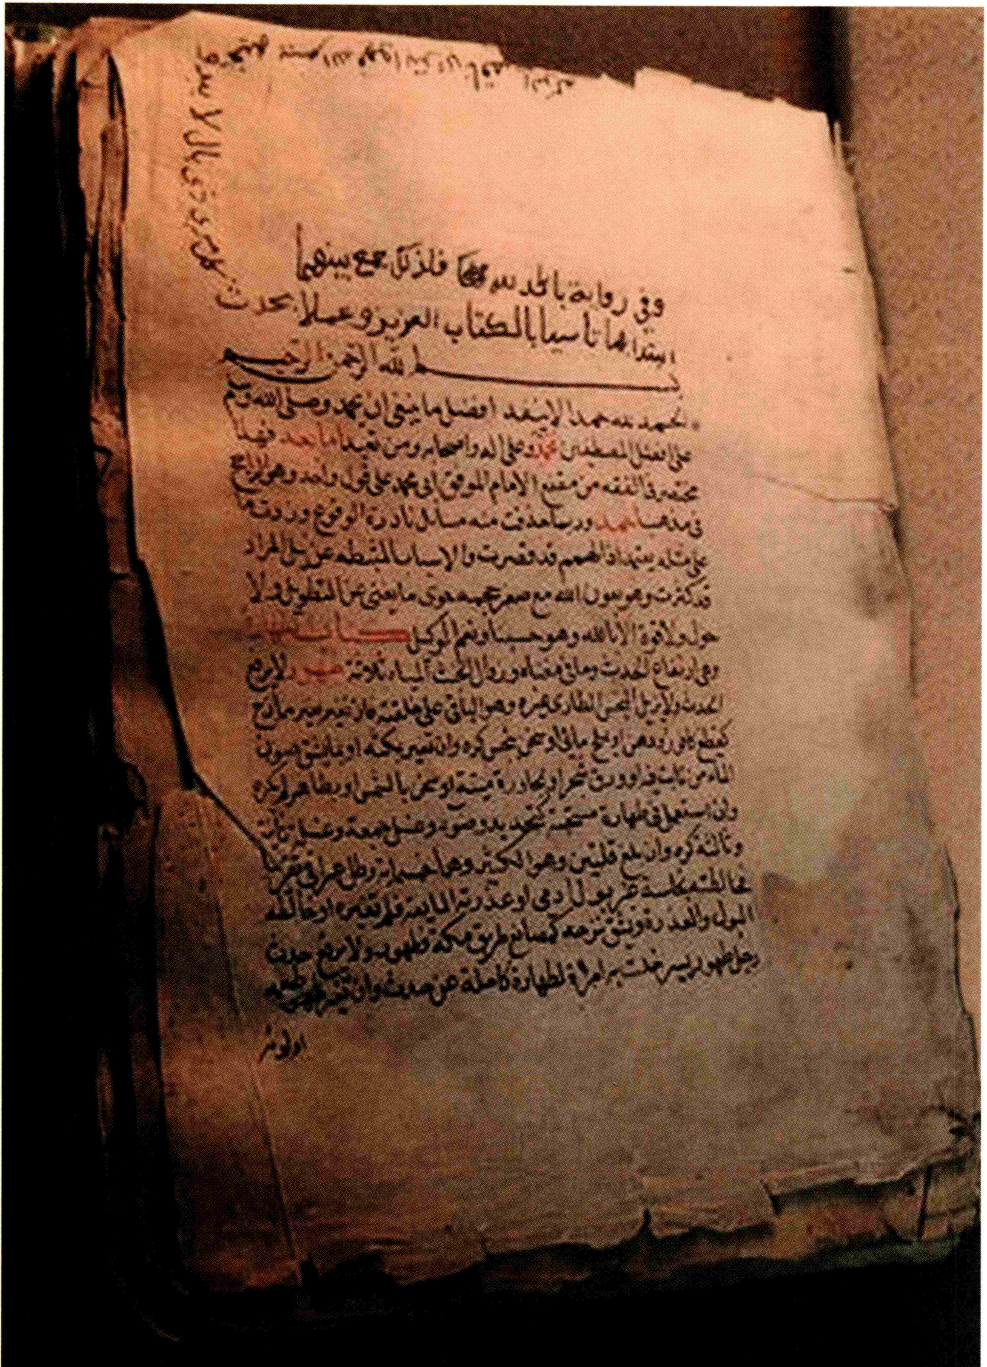 وفي رواية بالحمد لله فلذلك جمع بينهما
ابتدا بهما تاسيا بالكتاب العزيز وعملا بحديث
كل امر ذي بال لا يبدو
فيه ببسم الله فهو ابتر اي ناقص البركه
بسم الله الرحمن الرحيم
الحمد لله حمدا لا ينفد افضل ما ينبغي ان يحمد وصلى الله وسلم
على افضل المصطفين محمد وعلى اله واصحابه ومن تعبد اما بعد فهذا
مختصر في الفقه من مقنع الامام الموفق ابي محمد على قول واحد وهو الراجح
في مذهب احمد وربما حذفت منه مسائل نادرة الوقوع وزدت ما
على مثله يعتمد اذ الهمم قد قصرت والاسباب المثبطه عن نيل المراد
قد كثرت وهو بعون الله مع صغر حجمه حوى ما يغني عن التطويل ولا
حول ولا قوة الا بالله وهو حسبنا ونعم الوكيل كتاب الطهارة
وهي ارتفاع الحدث وما في معناه وزوال الخبث المياه ثلاثة طهور لا يرفع
الحدث ولا يزيل النجس الطاري غيره وهو الباقي على خلقته فان تغير بغير ممازج
كقطع كافور ودهن او بملح مائي او سخن بنجس كره وان تغير بمكثه او بما يشق صون
الماء من نابت فيه وورق شجر او بمجاورة ميتة او سخن بالشمس او بطاهر لم يكره
وان استعمل في طهارة مستحبة كتجديد وضوء وغسل جمعة وغسلة ثانية
وثالثة كره وان بلغ قلتين وهو الكثير وهما خمسماية رطل عراقي تقريبا
فخالطته نجاسة غير بول ادمي او عذرته المايعة فلم تغيره او خالطه
البول والعذرة ويشق نزحه كمصانع طريق مكة فطهور ولا يرفع حدث
رجل طهور يسير خلت به امراة لطهارة كاملة عن حدث وان تغير طعمه
او لونه